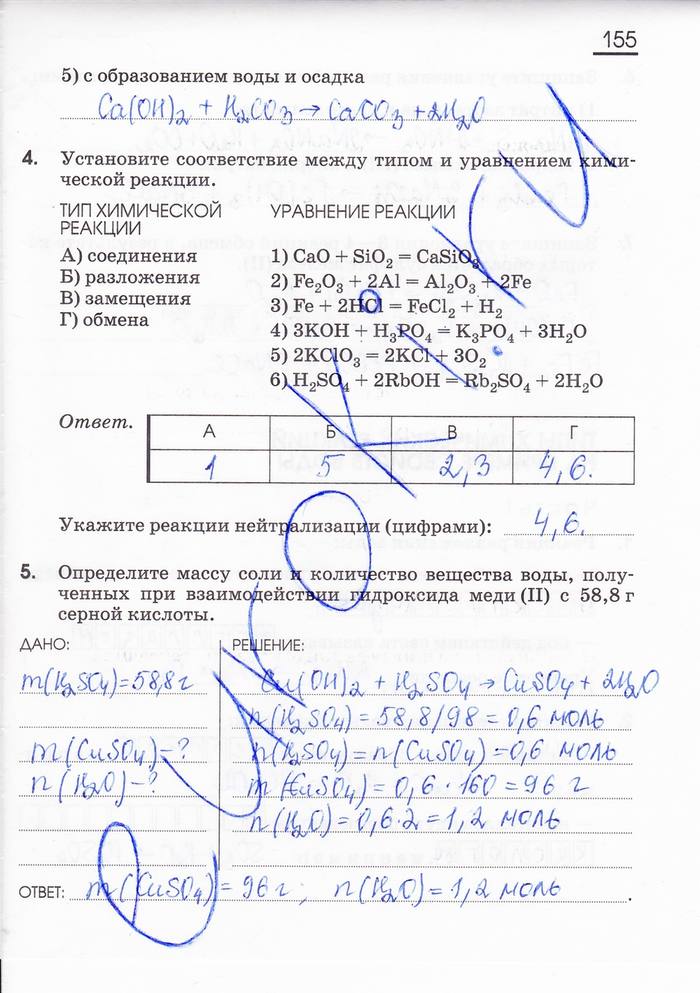 155
5) с образованием воды и осадка
Ca(OH)₂ + H₂CO₃ → CaCO₃ + 2H₂O
4. Установите соответствие между типом и уравнением хими-
ческой реакции.
ТИП ХИМИЧЕСКОЙ
РЕАКЦИИ
А) соединения
Б) разложения
В) замещения
Г) обмена
УРАВНЕНИЕ РЕАКЦИИ
1) CaO + SiO₂ = CaSiO₃
2) Fe₂O₃ + 2Al = Al₂O₃ + 2Fe
3) Fe + 2HCl = FeCl₂ + H₂
4) 3KOH + H₃PO₄ = K₃PO₄ + 3H₂O
5) 2KClO₃ = 2KCl + 3O₂
6) H₂SO₄ + 2RbOH = Rb₂SO₄ + 2H₂O
Ответ.
А Б В Г
1 5 2,3 4,6.
Укажите реакции нейтрализации (цифрами): 4,6.
5. Определите массу соли и количество вещества воды, полу-
ченных при взаимодействии гидроксида меди (II) с 58,8 г
серной кислоты.
ДАНО:
m(H₂SO₄)=58,8г
m(CuSO₄)-?
n(H₂O)-?
РЕШЕНИЕ:
Cu(OH)₂ + H₂SO₄ → CuSO₄ + 2H₂O
n(H₂SO₄) = 58,8/98 = 0,6 моль
n(H₂SO₄) = n(CuSO₄) = 0,6 моль
m(CuSO₄) = 0,6 · 160 = 96 г
n(H₂O) = 0,6·2 = 1,2 моль
ОТВЕТ: m(CuSO₄) = 96 г; n(H₂O) = 1,2 моль.